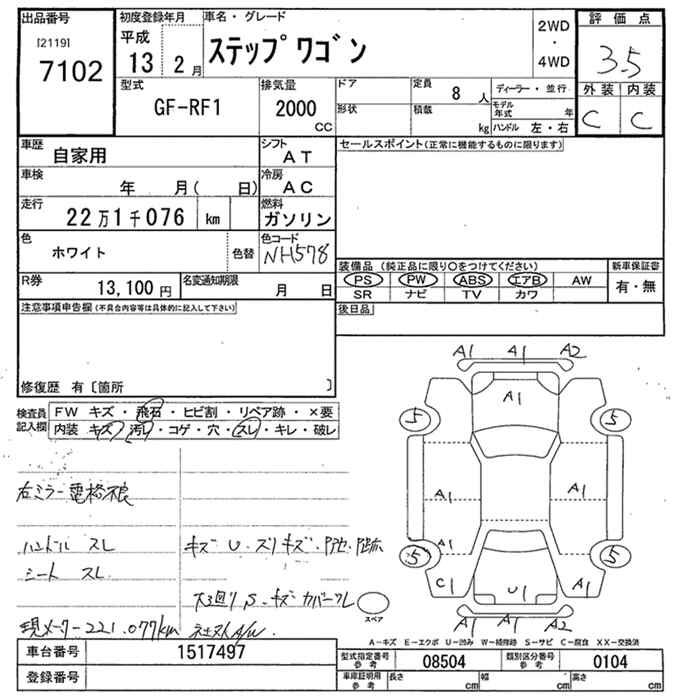 出品番号 初度登録年月 車名・グレード 2WD 評価点
[2119] 平成 ステップワゴン ・ 3.5
7102 13 2月 4WD 外装 内装
型式 排気量 ドア 定員 8人 ディーラー・並行 C C
GF-RF1 2000 CC 形状 積載 kg モデル年式 年
ハンドル 左・右
車歴 自家用 シフト AT セールスポイント(正常に機能するものに限ります)
車検 年 月( 日) 冷房 AC
走行 22万1千076 km 燃料 ガソリン
色 ホワイト 色替 色コード NH578
装備品 (純正品に限り○をつけてください) 新車保証書
R券 13,100円 名変通知期限 月 日 PS PW ABS エアB AW 有・無
SR ナビ TV カワ
注意事項申告欄(不具合内容等は具体的に記入して下さい) 後日品
修復歴 有〔箇所 〕
検査員記入欄 FW キズ・飛石・ヒビ割・リペア跡・×要
内装 キズ・汚レ・コゲ・穴・スレ・キレ・破レ
A1 A1 A2
A1
5 5
A1 A1
5 A1 5
C1 U1 A1
A1 A1 A2
右ミラー電格不良
ハンドル スレ キズ U・スリキズ・
シート スレ
S・キズ カバースレ
スペア
現メーター221.077km
A-キズ E-エクボ U-凹み W-補修跡 S-サビ C-腐食 XX-交換済
車台番号 1517497 型式指定番号 参考 08504 類別区分番号 参考 0104
登録番号 車庫証明用 参考 長さ cm 幅 cm 高さ cm